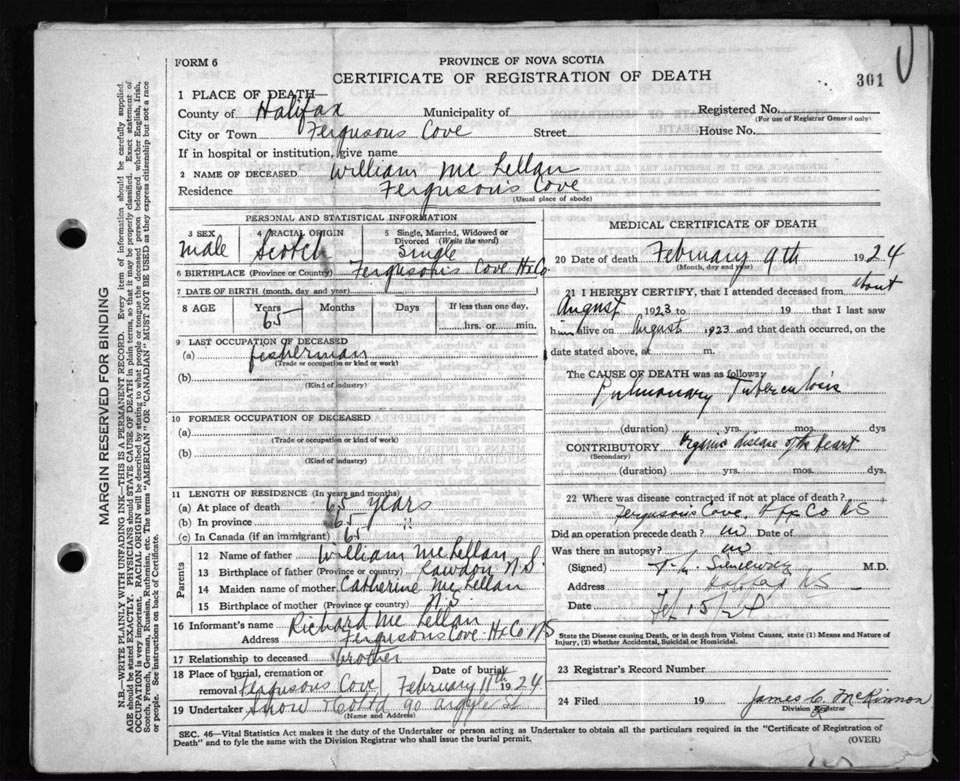 FORM 6
PROVINCE OF NOVA SCOTIA
CERTIFICATE OF REGISTRATION OF DEATH
301
1 PLACE OF DEATH—
County of Halifax Municipality of
Registered No.
(For use of Registrar General only)
City or Town Fergusons Cove Street
House No.
If in hospital or institution, give name
2 NAME OF DECEASED William Mc Lellan
Residence Ferguson's Cove
(Usual place of abode)
PERSONAL AND STATISTICAL INFORMATION
3 SEX
male
4 RACIAL ORIGIN
Scotch
5 Single, Married, Widowed or
Divorced (Write the word)
Single
6 BIRTHPLACE (Province or Country) Ferguson's Cove Hx Co
7 DATE OF BIRTH (month, day and year)
8 AGE
Years
65
Months
Days
If less than one day,
hrs. or min.
9 LAST OCCUPATION OF DECEASED
(a) fisherman
(Trade or occupation or kind of work)
(b)
(Kind of industry)
10 FORMER OCCUPATION OF DECEASED
(a)
(Trade or occupation or kind of work)
(b)
(Kind of industry)
11 LENGTH OF RESIDENCE (In years and months)
(a) At place of death 65 years
(b) In province 65 "
(c) In Canada (if an immigrant) 65
Parents
12 Name of father William Mc Lellan
13 Birthplace of father (Province or country) Rawdon N.S.
14 Maiden name of mother Catherine Mc Lellan
15 Birthplace of mother (Province or country) N.S.
16 Informant's name Richard Mc Lellan
Address Fergusons Cove Hx Co N S
17 Relationship to deceased brother
18 Place of burial, cremation or
removal Fergusons Cove
Date of burial
February 11th 1924
19 Undertaker Snow & Co Ltd 90 Argyle St
(Name and Address)
MEDICAL CERTIFICATE OF DEATH
20 Date of death February 9th 1924
(Month, day and year)
21 I HEREBY CERTIFY, that I attended deceased from about
August 1923 to 19 that I last saw
him alive on August 1923 and that death occurred, on the
date stated above, at m.
The CAUSE OF DEATH was as follows:
Pulmonary Tuberculosis
(duration) yrs. mos. dys
CONTRIBUTORY Organic disease of the Heart
(Secondary)
(duration) yrs. mos. dys.
22 Where was disease contracted if not at place of death?
Fergusons Cove, Hx Co NS
Did an operation precede death? no Date of
Was there an autopsy? no
(Signed) M.D.
Address Halifax NS
Date Feb 15/24
State the Disease causing Death, or in death from Violent Causes, state (1) Means and Nature of
Injury, (2) whether Accidental, Suicidal or Homicidal.
23 Registrar's Record Number
24 Filed 19 James C. McKinnon
Division Registrar
SEC. 46—Vital Statistics Act makes it the duty of the Undertaker or person acting as Undertaker to obtain all the particulars required in the "Certificate of Registration of
Death" and to fyle the same with the Division Registrar who shall issue the burial permit.
(OVER)
MARGIN RESERVED FOR BINDING
N.B.—WRITE PLAINLY WITH UNFADING INK—THIS IS A PERMANENT RECORD. Every item of information should be carefully supplied.
AGE should be stated EXACTLY. PHYSICIANS should STATE CAUSE OF DEATH in plain terms, so that it may be properly classified. Exact statement of
OCCUPATION is very important. RACIAL ORIGIN will be described by stating to what people or tongue the deceased person belonged whether English, Irish,
Scotch, French, German, Russian, Ruthenian, etc. The terms "AMERICAN" OR "CANADIAN" MUST NOT BE USED as they express citizenship but not a race
or people. See instructions on back of Certificate.